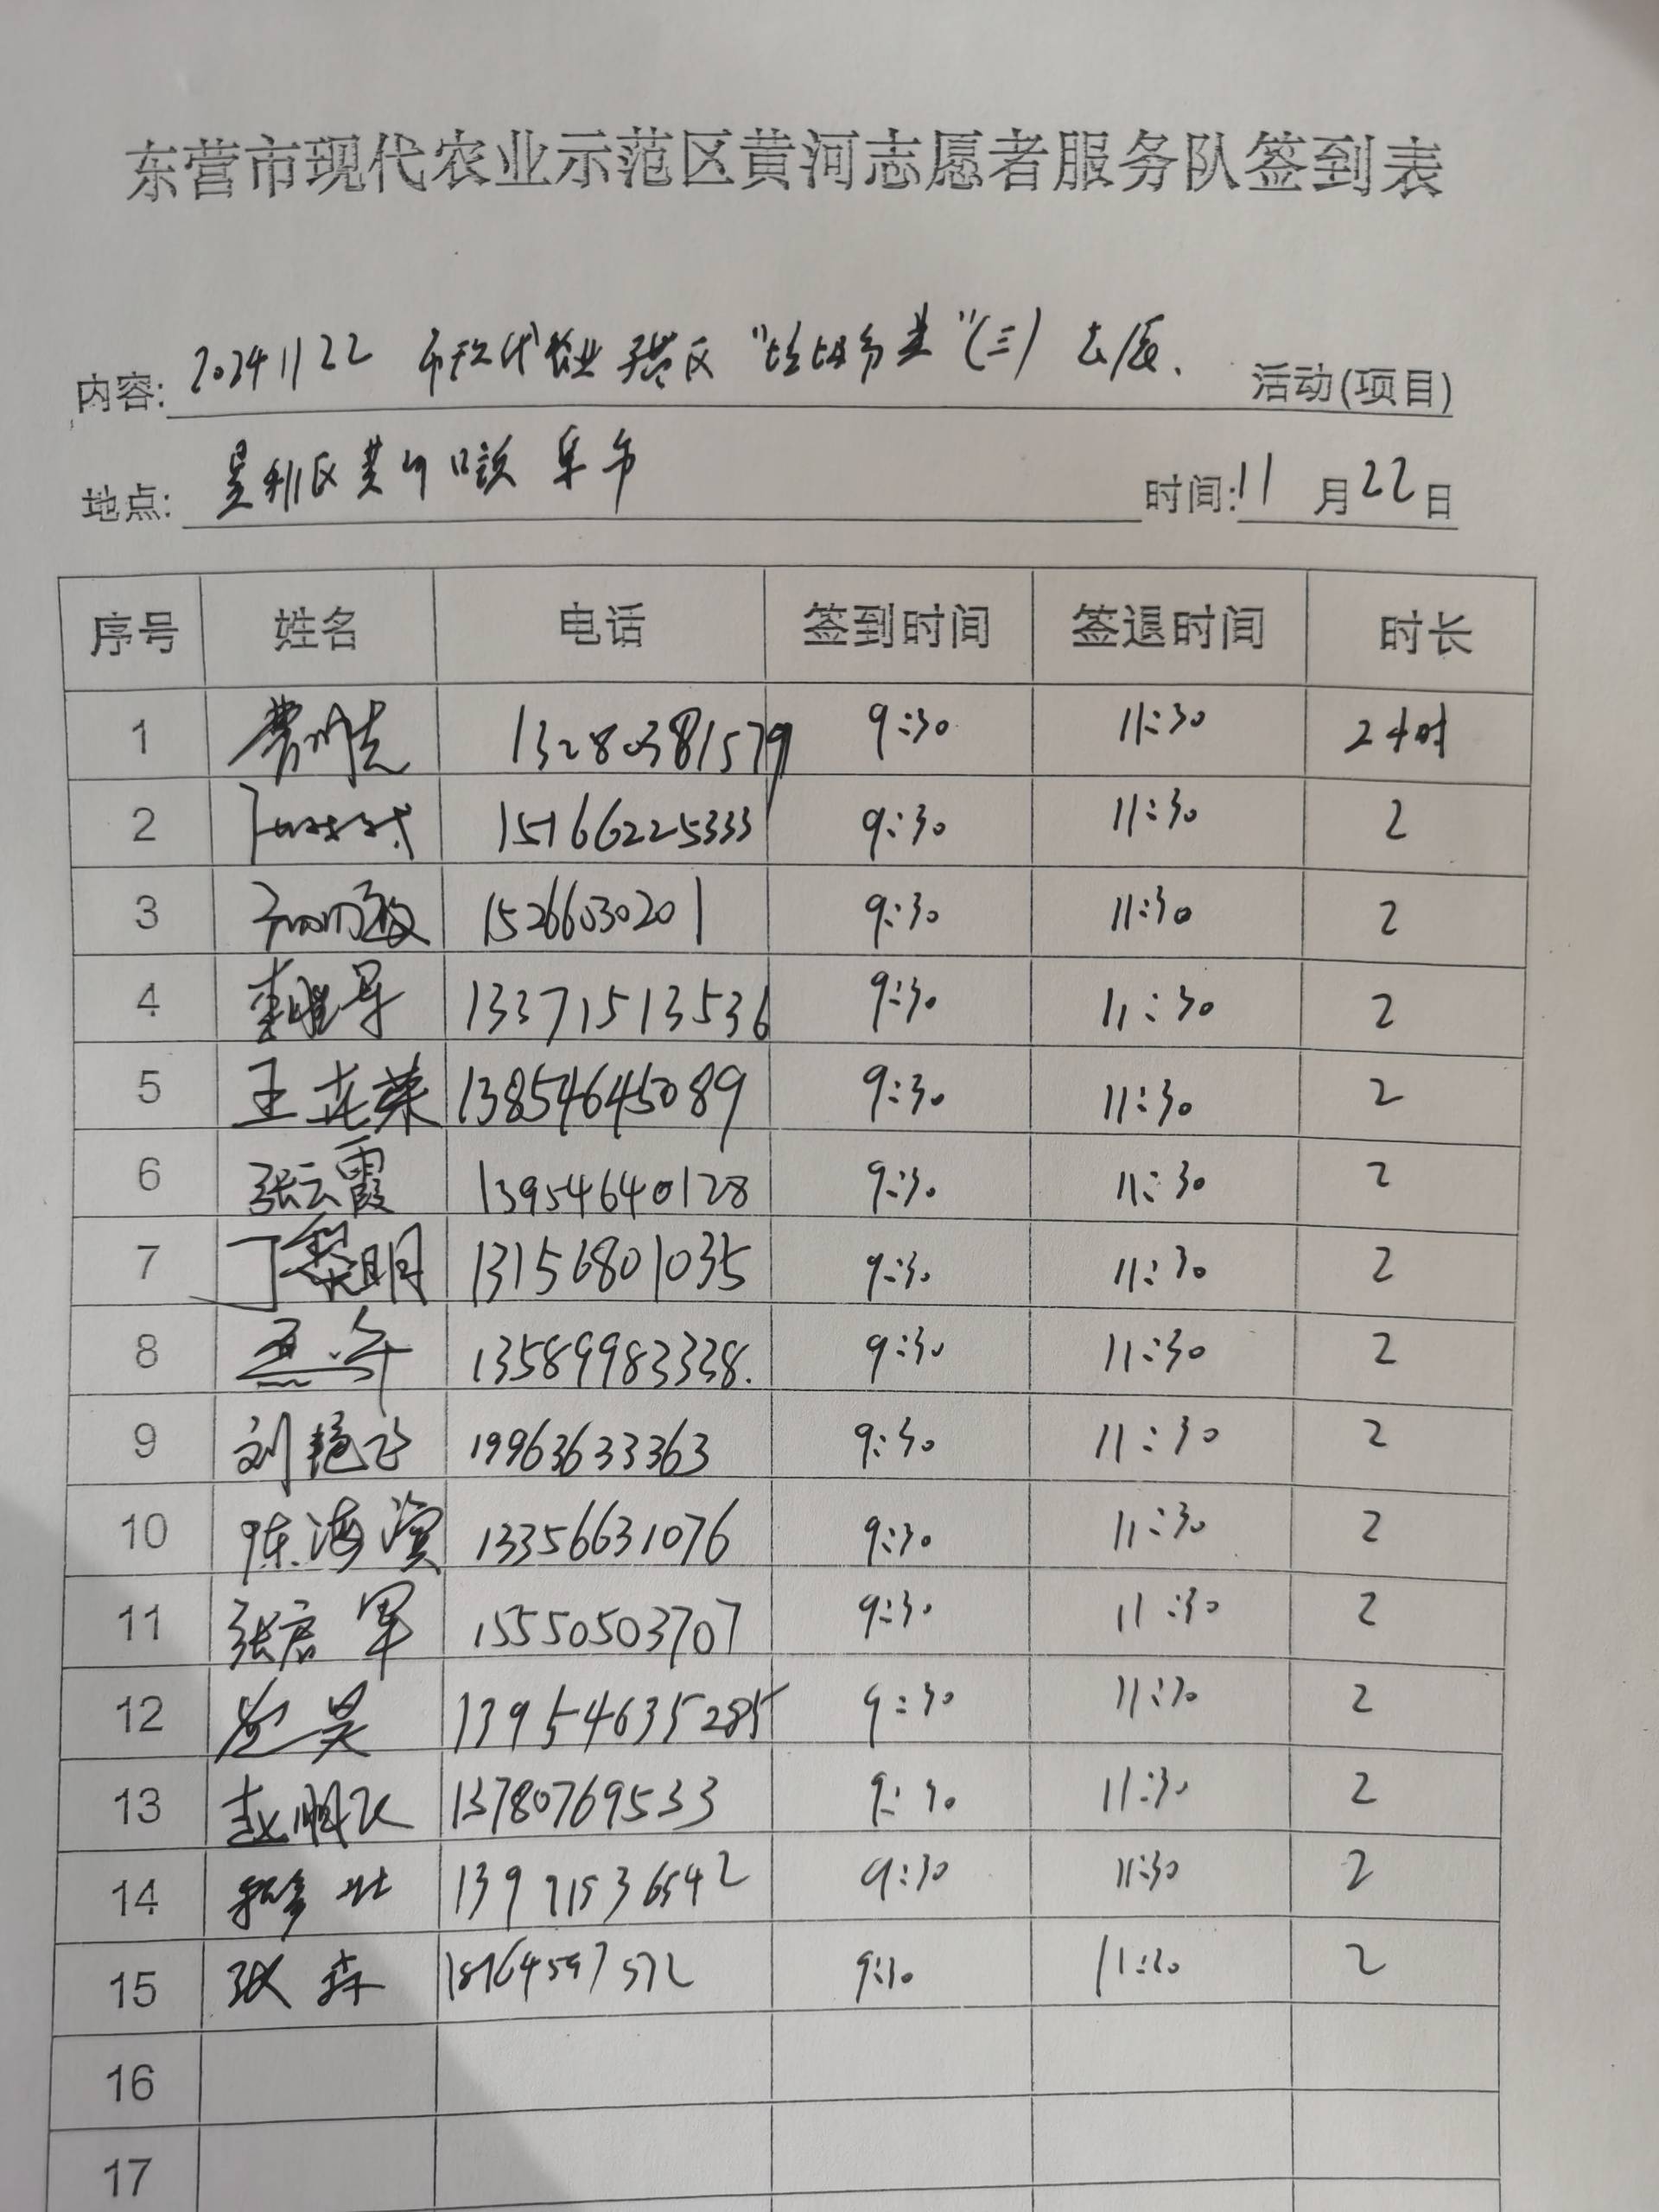 东营市现代农业示范区黄河志愿者服务队签到表
内容: 20241122 市现代农业示范区"垃圾分类"(三)志愿. 活动(项目)
地点: 垦利区黄河口镇 时间: 11 月 22 日
序号 姓名 电话 签到时间 签退时间 时长
1 13280381579 9:30 11:30 2小时
2 15166225333 9:30 11:30 2
3 15266030201 9:30 11:30 2
4 13371513536 9:30 11:30 2
5 王 荣 13854645089 9:30 11:30 2
6 张云霞 13954640128 9:30 11:30 2
7 丁黎明 13156801035 9:30 11:30 2
8 13589983338. 9:30 11:30 2
9 刘艳飞 19963633363 9:30 11:30 2
10 陈海滨 13356631076 9:30 11:30 2
11 张宏军 15550503707 9:30 11:30 2
12 昊 13954635285 9:30 11:30 2
13 赵 13780769533 9:30 11:30 2
14 9:30 11:30 2
15 张森 9:30 11:30 2
16
17